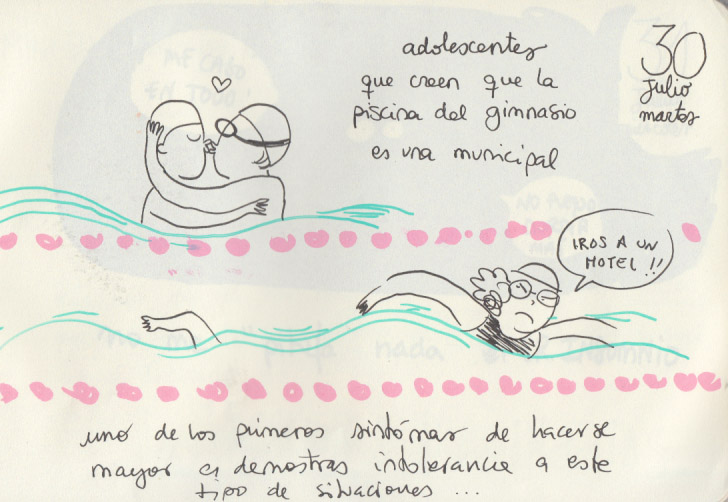 30
Julio
martes
adolescentes
que creen que la
piscina del gimnasio
es una municipal
IROS A UN
HOTEL !!
uno de los primeros síntomas de hacerse
mayor es demostrar intolerancia a este
tipo de situaciones ...